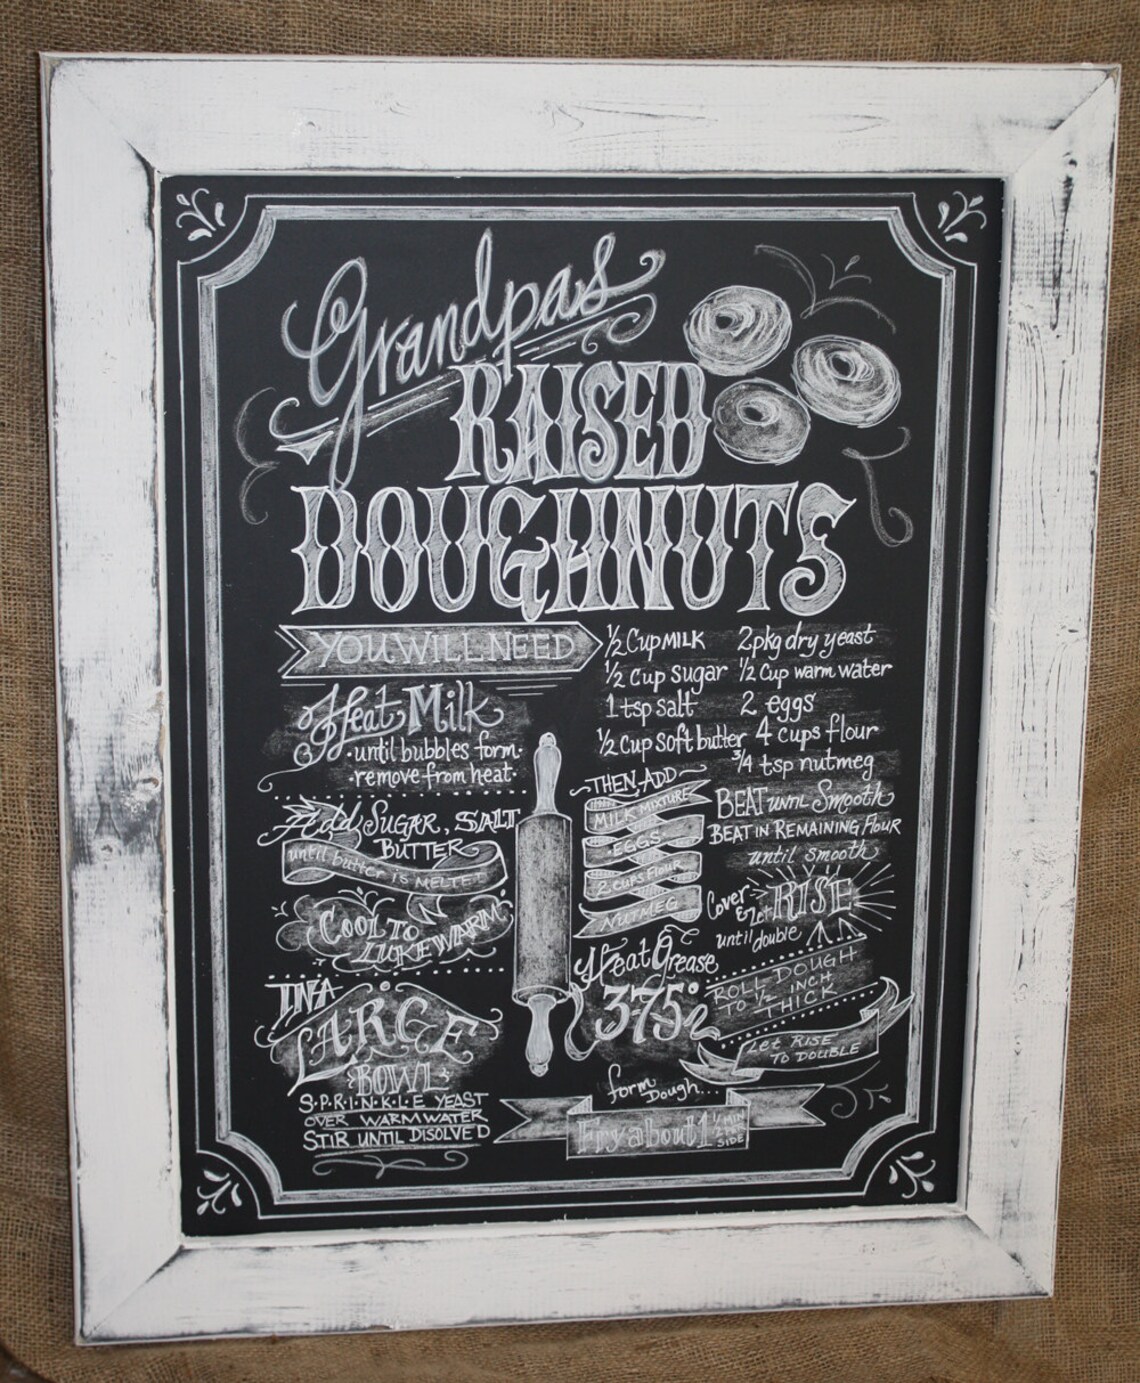 Grandpas
RAISED
DOUGHNUTS
YOU WILL NEED
1/2 Cup MILK
1/2 Cup sugar
1 tsp salt
1/2 Cup Soft butter
2 pkg dry yeast
1/2 Cup warm water
2 eggs
4 cups flour
3/4 tsp nutmeg
Heat Milk
·until bubbles form·
·remove from heat·
Add SUGAR, SALT
BUTTER
until butter IS MELTED
COOL TO
LUKEWARM
IN A
LARGE
BOWL
S·P·R·I·N·K·L·E YEAST
OVER WARM WATER
STIR UNTIL DISOLVED
THEN ADD
MILK MIXTURE
·EGGS·
2 CUPS FLOUR
NUTMEG
BEAT UNTIL Smooth
BEAT IN REMAINING Flour
until smooth
Cover
& let RISE
until double
Heat Grease
375°
ROLL DOUGH
TO 1/2 INCH
THICK
Let RISE
TO DOUBLE
form
Dough...
Fry about 1 1/2 MIN
PER
SIDE